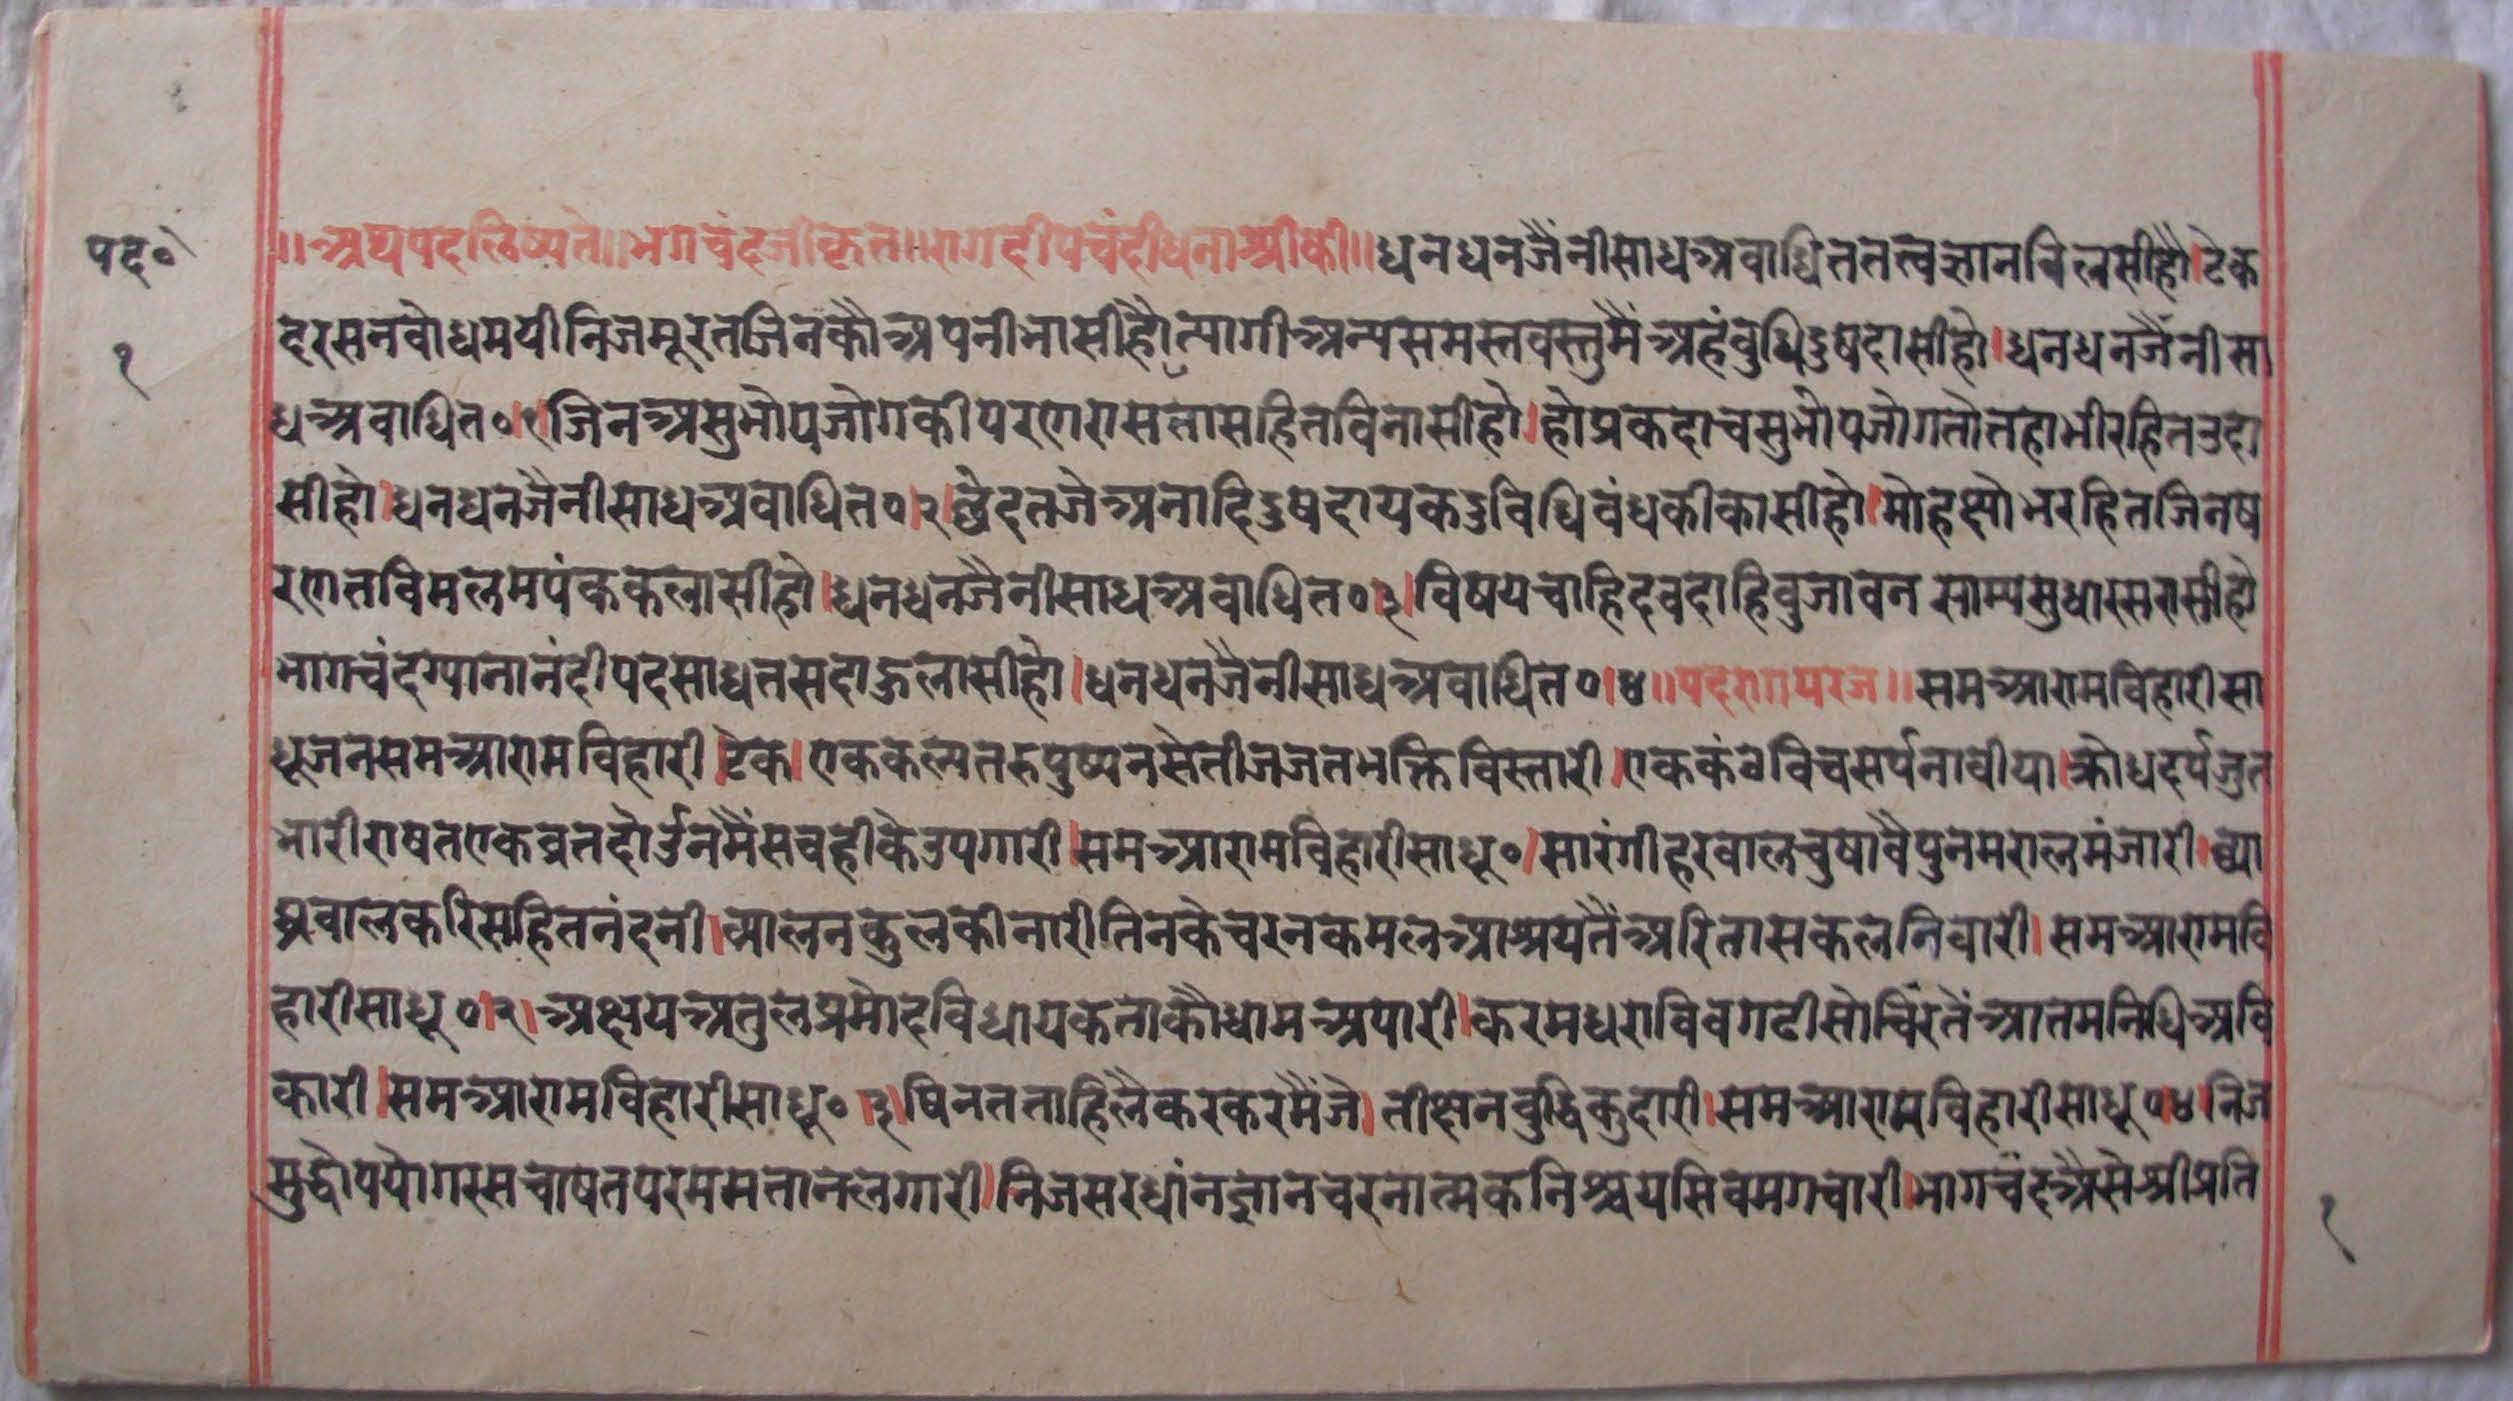 ॥अथपदलिष्यते॥भगचंदजीकृत॥रागदीपचंदीधनाश्रीकी॥धनधनजैंनीसाधअवाधिततत्वज्ञानविलसीहौ।टेक
पद॰
दरसनवोधमयीनिजमूरतजिनकौअपनीभासीहौत्यागीअन्यसमस्तवस्तुमैंअहंवुधिदुषदासीहो।धनधनजैंनीसा
१
धअवाधित०।१।जिनअसुभोपजोगकीपरणरासत्तासहितविनासीहो।होप्रकदाचसुभोपजोगतोतहाभीरहितउदा
सीहो।धनधनजैनीसाधअवाधित०।२।छेदतजेअनादिदुषदायकदुविधिवंधकीकासीहो।मोहक्षोभरहितजिनष
रणतविमलमपंककलासीहो।धनधनजैनीसाधअवाधित०।३।विषयचाहिदवदाहिवुजावन साम्यसुधारसरासीहो
भागचंदग्पानानंदीपदसाधतसदाहुलासीहौ।धनधनजैनीसाधअवाधित०।४॥पदरागपरज॥समआरामविहारीसा
धूजनसमआरामविहारी।टेक।एककल्पतरुपुष्पनसेतीजजतभक्तिविस्तारी।एककंठविचसर्पनावीया।क्रोधदर्पजुत
भारीराषतएकव्रतदोर्उनमैंसवहीकेउपगारी।समआरामविहारीसाधू०।सारंगीहरवालचुषावैपुनमरालमंजारी।व्या
घ्रवालकरिसहितनंदनी।व्यालनकुलकीनारीतिनकेचरनकमलआश्रयतैंअरितासकलनिवारी।समआरामवि
हारीसाधू०।२।अक्षयअतुलप्रमोदविधायकताकौधामअपारी।करमधराविवगढीसोचिंरतेंआतमनिधिअवि
कारी।समआरामविहारीसाधू०।३।षिनतताहिलैकरकरमैंजे।तीक्षनवुद्धिकुदारी।समआरामविहारीसाधू०।४।निज
सुद्धोपयोगरसचाषतपरममतानलगारी।निजसरधांनज्ञानचरनात्मकनिश्चयसिवमगचारी।भागचंदअैसेश्रीप्रति
१